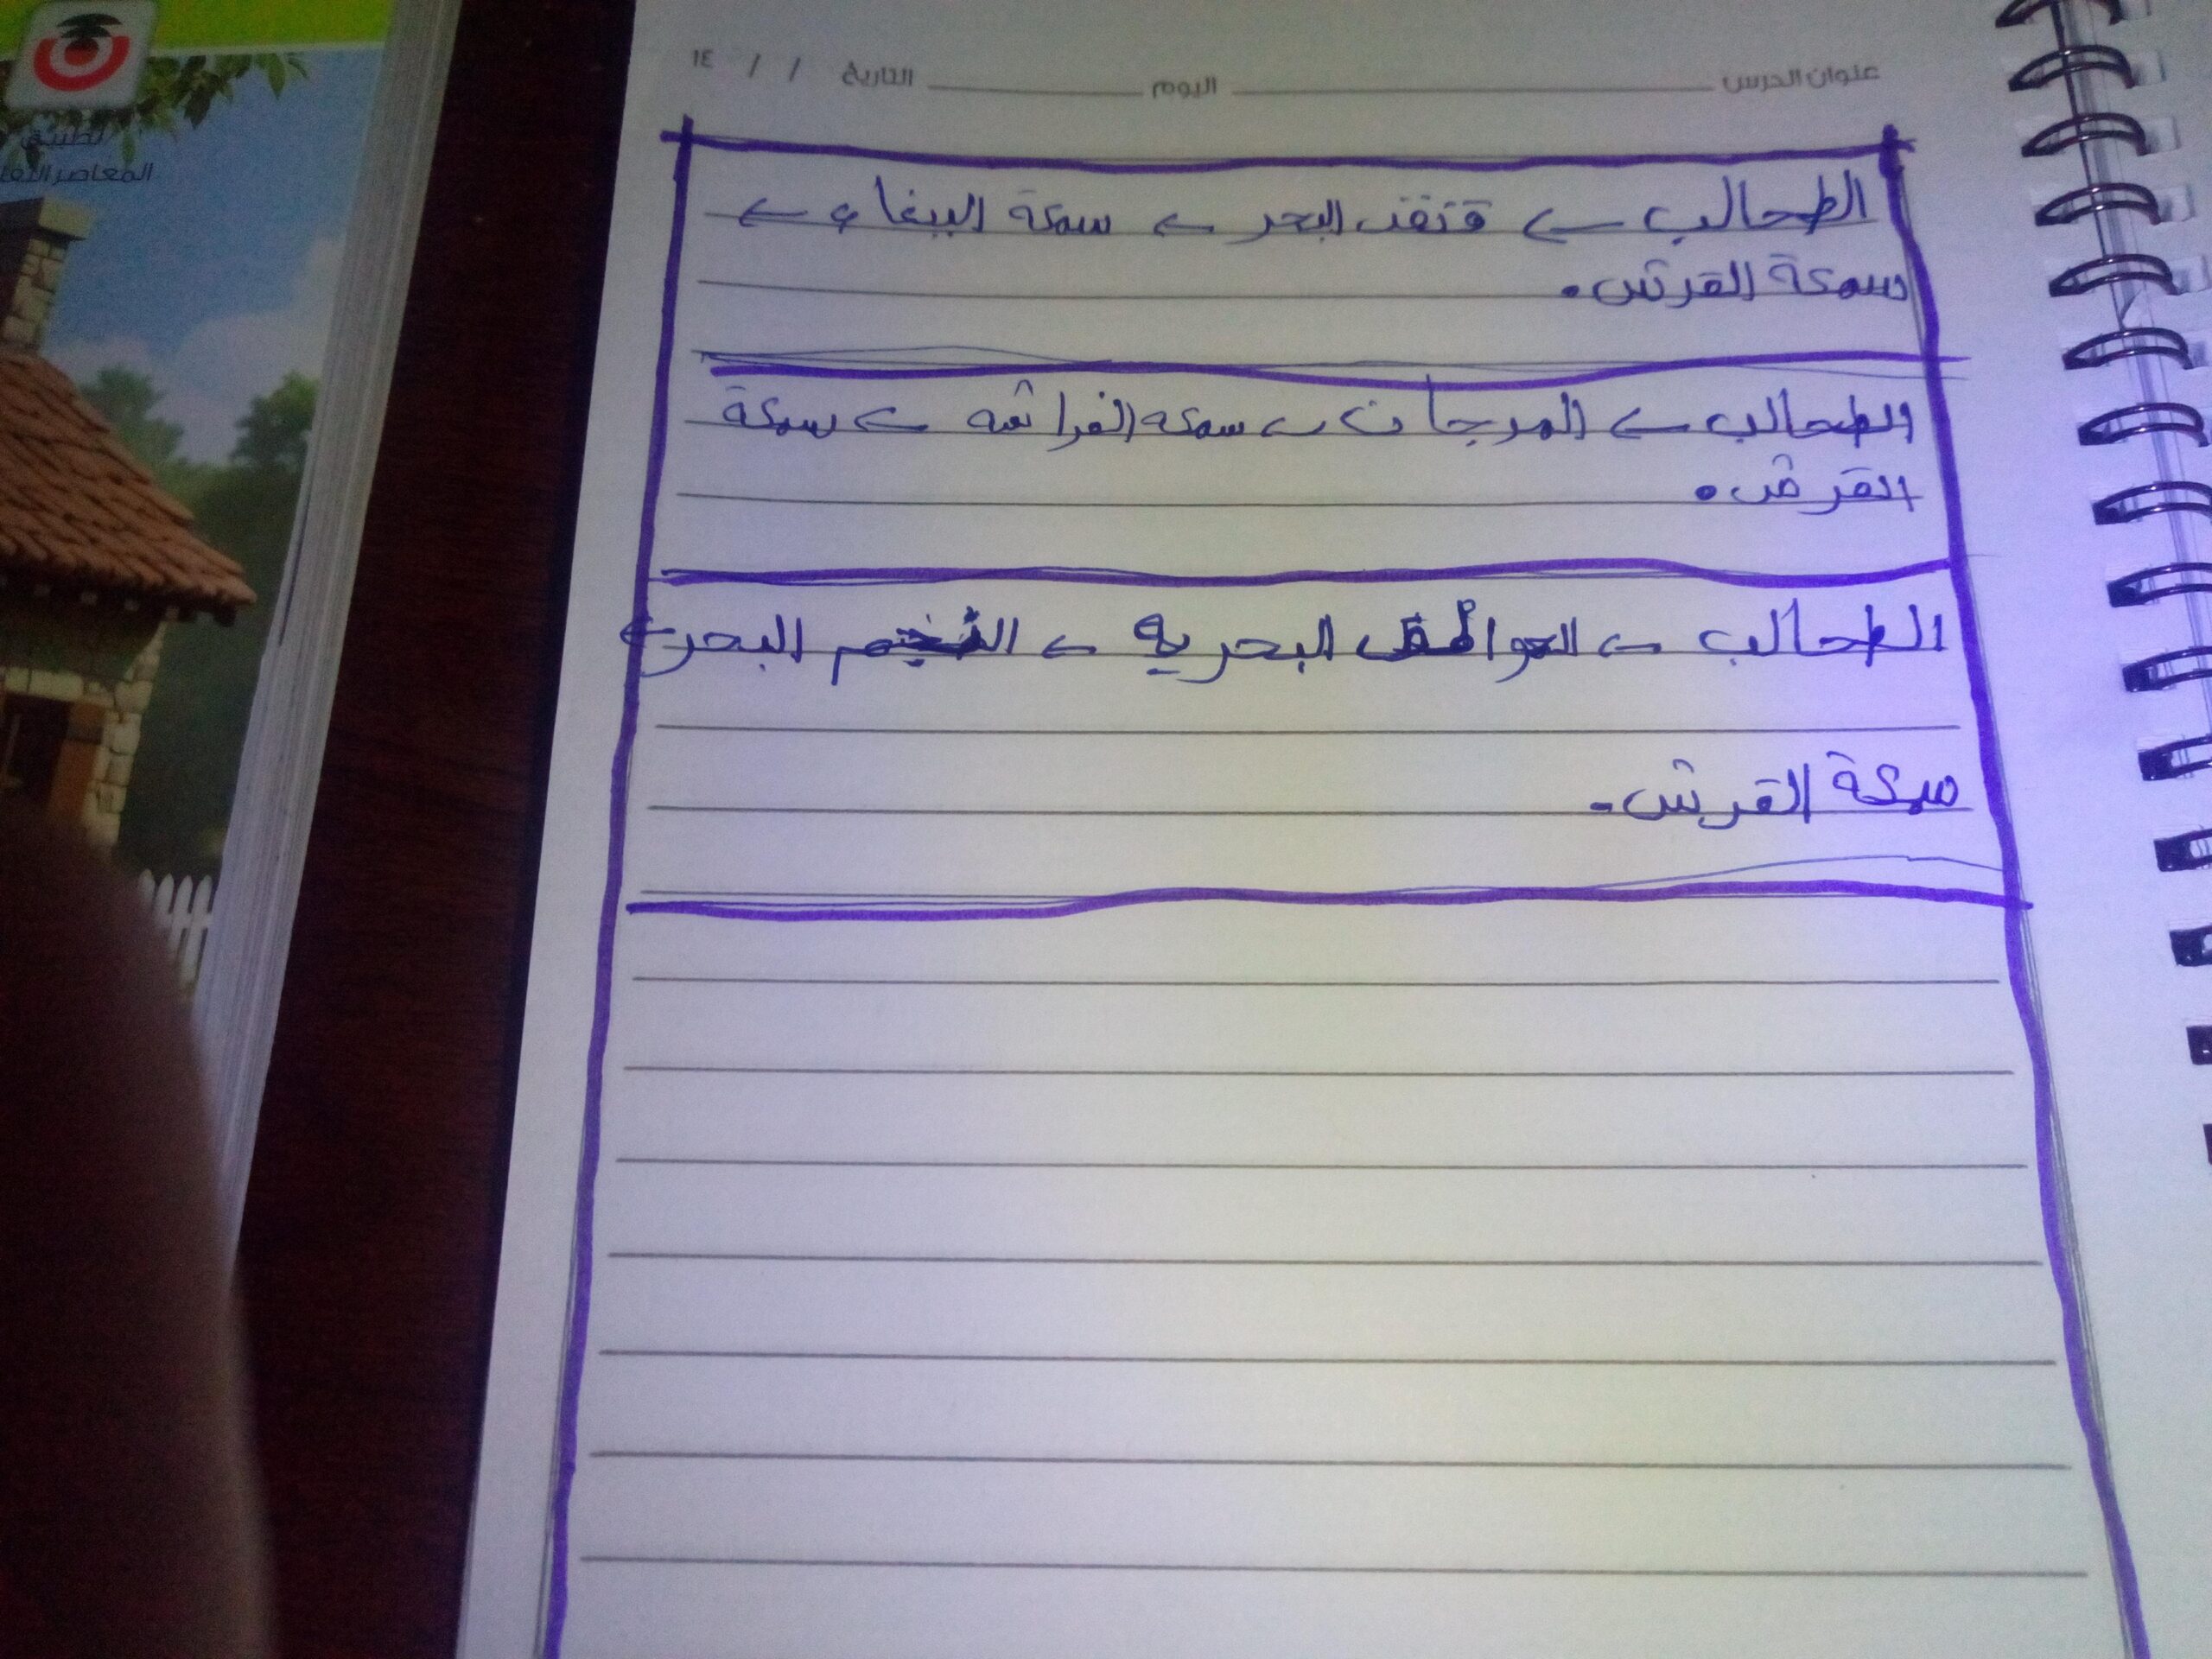 عنوان الدرس اليوم التاريخ / / ١٤
الطحالب ← قنفذ البحر ← سمكة الببغاء ←
سمكة القرش.
الطحالب ← المرجان ← سمكه الفراشه ← سمكة
القرش.
الطحالب ← العوالق البحريه ← النجم البحر ←
سمكة القرش.